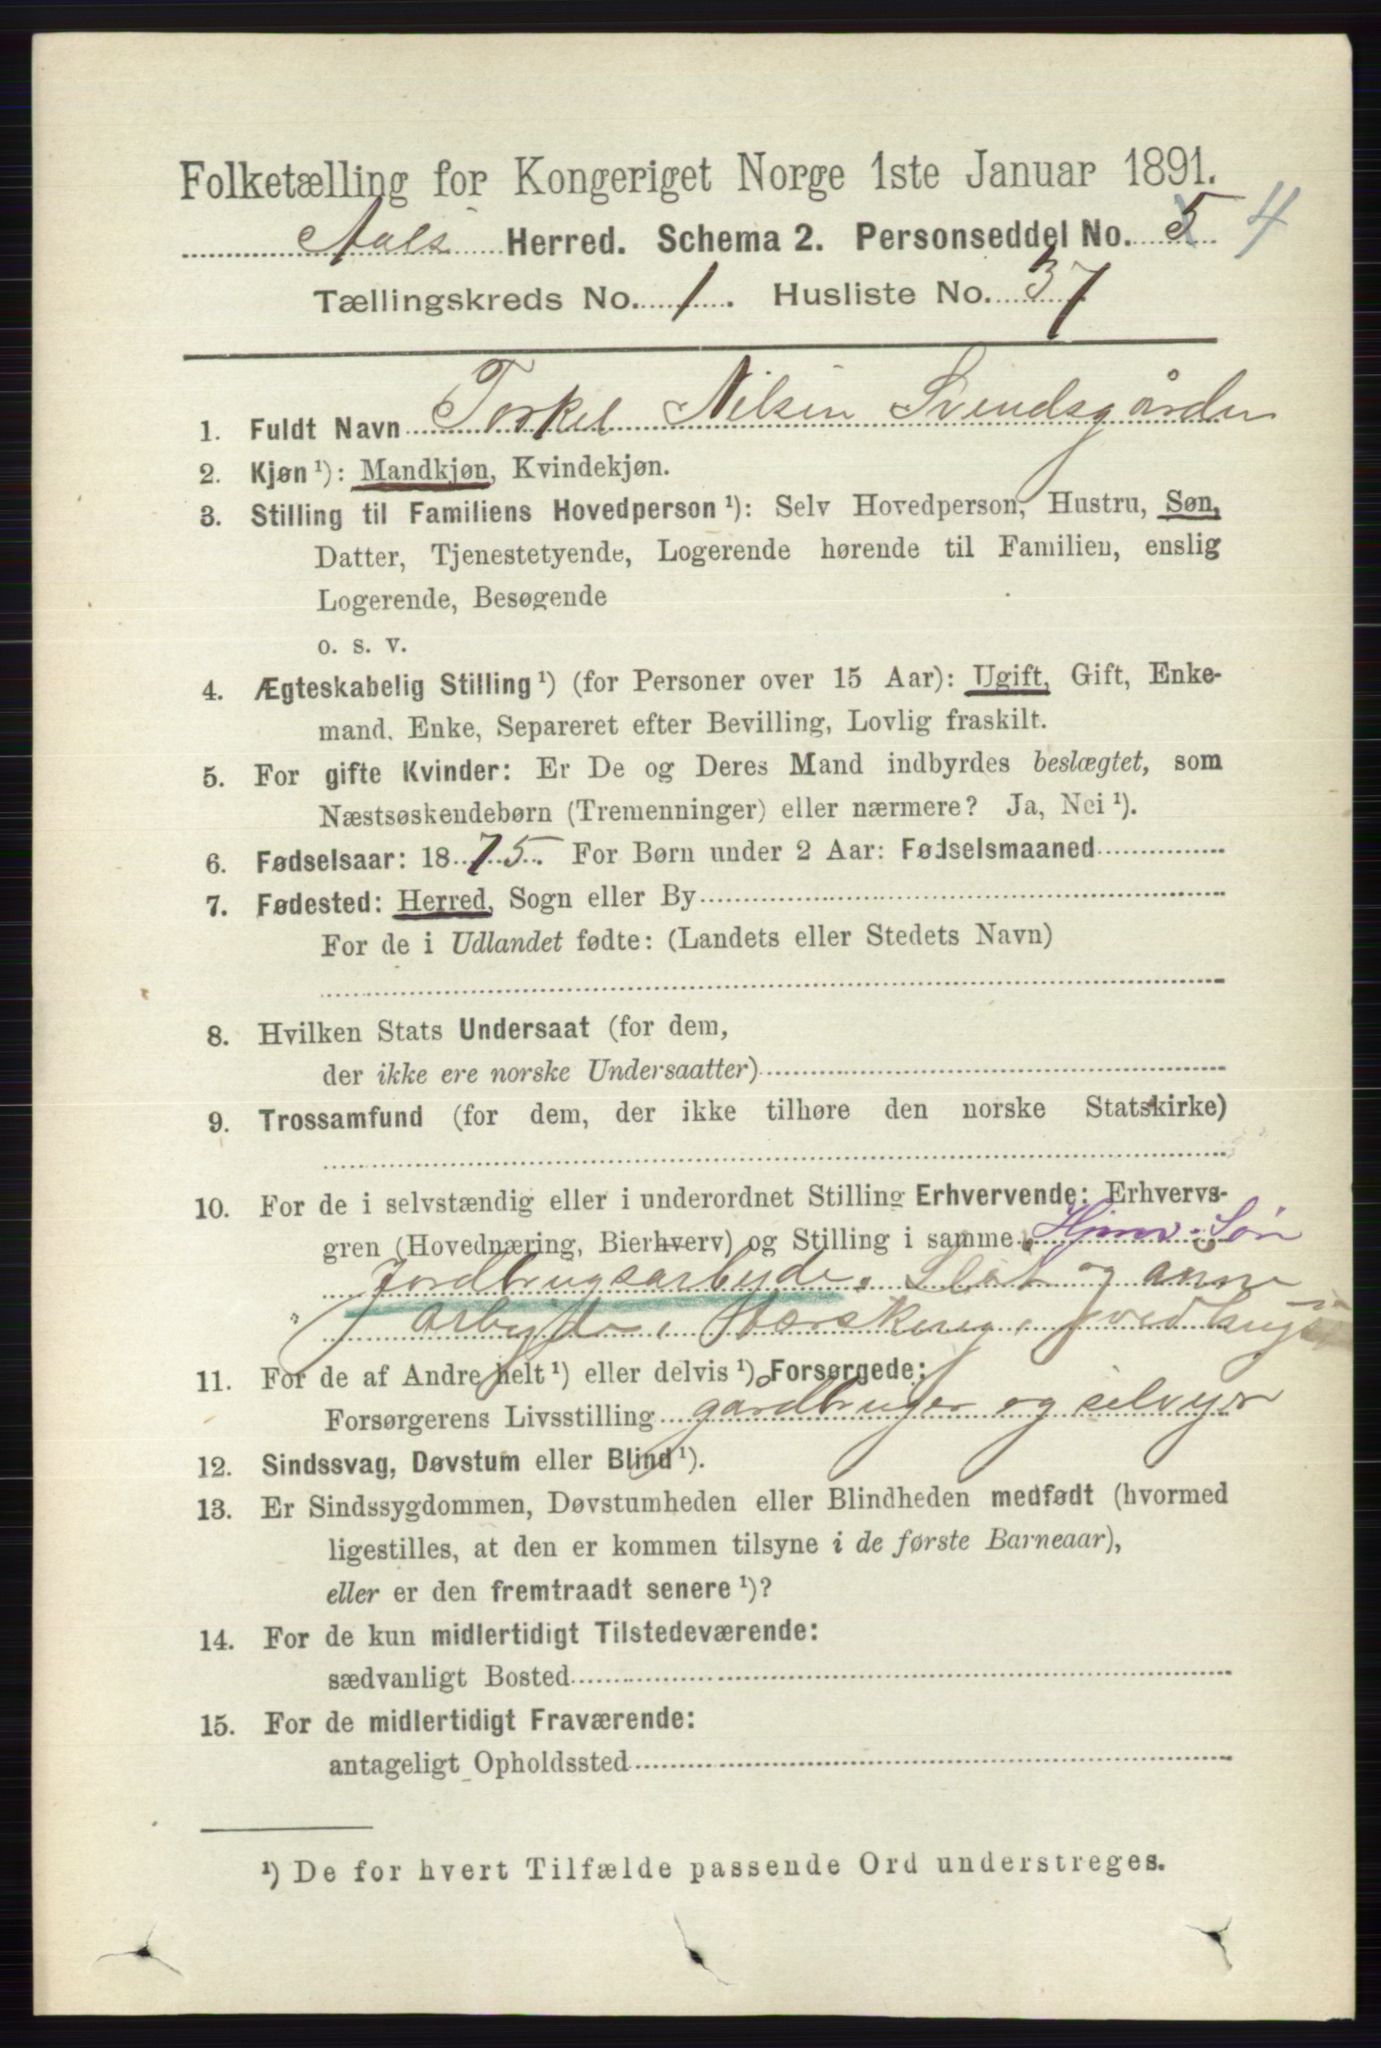 Folketælling for Kongeriget Norge 1ste Januar 1891.
Aals Herred. Schema 2. Personseddel No. 5 4
Tællingskreds No. 1. Husliste No. 37
1. Fuldt Navn Torkel Nilsen Svendsgården
2. Kjøn ¹): Mandkjøn, Kvindekjøn.
3. Stilling til Familiens Hovedperson ¹): Selv Hovedperson, Hustru, Søn,
Datter, Tjenestetyende, Logerende hørende til Familien, enslig
Logerende, Besøgende
o. s. v.
4. Ægteskabelig Stilling ¹) (for Personer over 15 Aar): Ugift, Gift, Enke-
mand, Enke, Separeret efter Bevilling, Lovlig fraskilt.
5. For gifte Kvinder: Er De og Deres Mand indbyrdes beslægtet, som
Næstsøskendebørn (Tremenninger) eller nærmere? Ja, Nei ¹).
6. Fødselsaar: 1875. For Børn under 2 Aar: Fødselsmaaned
7. Fødested: Herred, Sogn eller By
For de i Udlandet fødte: (Landets eller Stedets Navn)
8. Hvilken Stats Undersaat (for dem,
der ikke ere norske Undersaatter)
9. Trossamfund (for dem, der ikke tilhøre den norske Statskirke)
10. For de i selvstændig eller i underordnet Stilling Erhvervende: Erhvervs-
gren (Hovednæring, Bierhverv) og Stilling i samme Hjmv. Søn
Jordbrugsarbyde, Slåt og anne
arbyde, Tærsking, vedhugst
11. For de af Andre helt ¹) eller delvis ¹) Forsørgede:
Forsørgerens Livsstilling gårdbruger og selvejer
12. Sindssvag, Døvstum eller Blind ¹).
13. Er Sindssygdommen, Døvstumheden eller Blindheden medfødt (hvormed
ligestilles, at den er kommen tilsyne i de første Barneaar),
eller er den fremtraadt senere ¹)?
14. For de kun midlertidigt Tilstedeværende:
sædvanligt Bosted
15. For de midlertidigt Fraværende:
antageligt Opholdssted
¹) De for hvert Tilfælde passende Ord understreges.